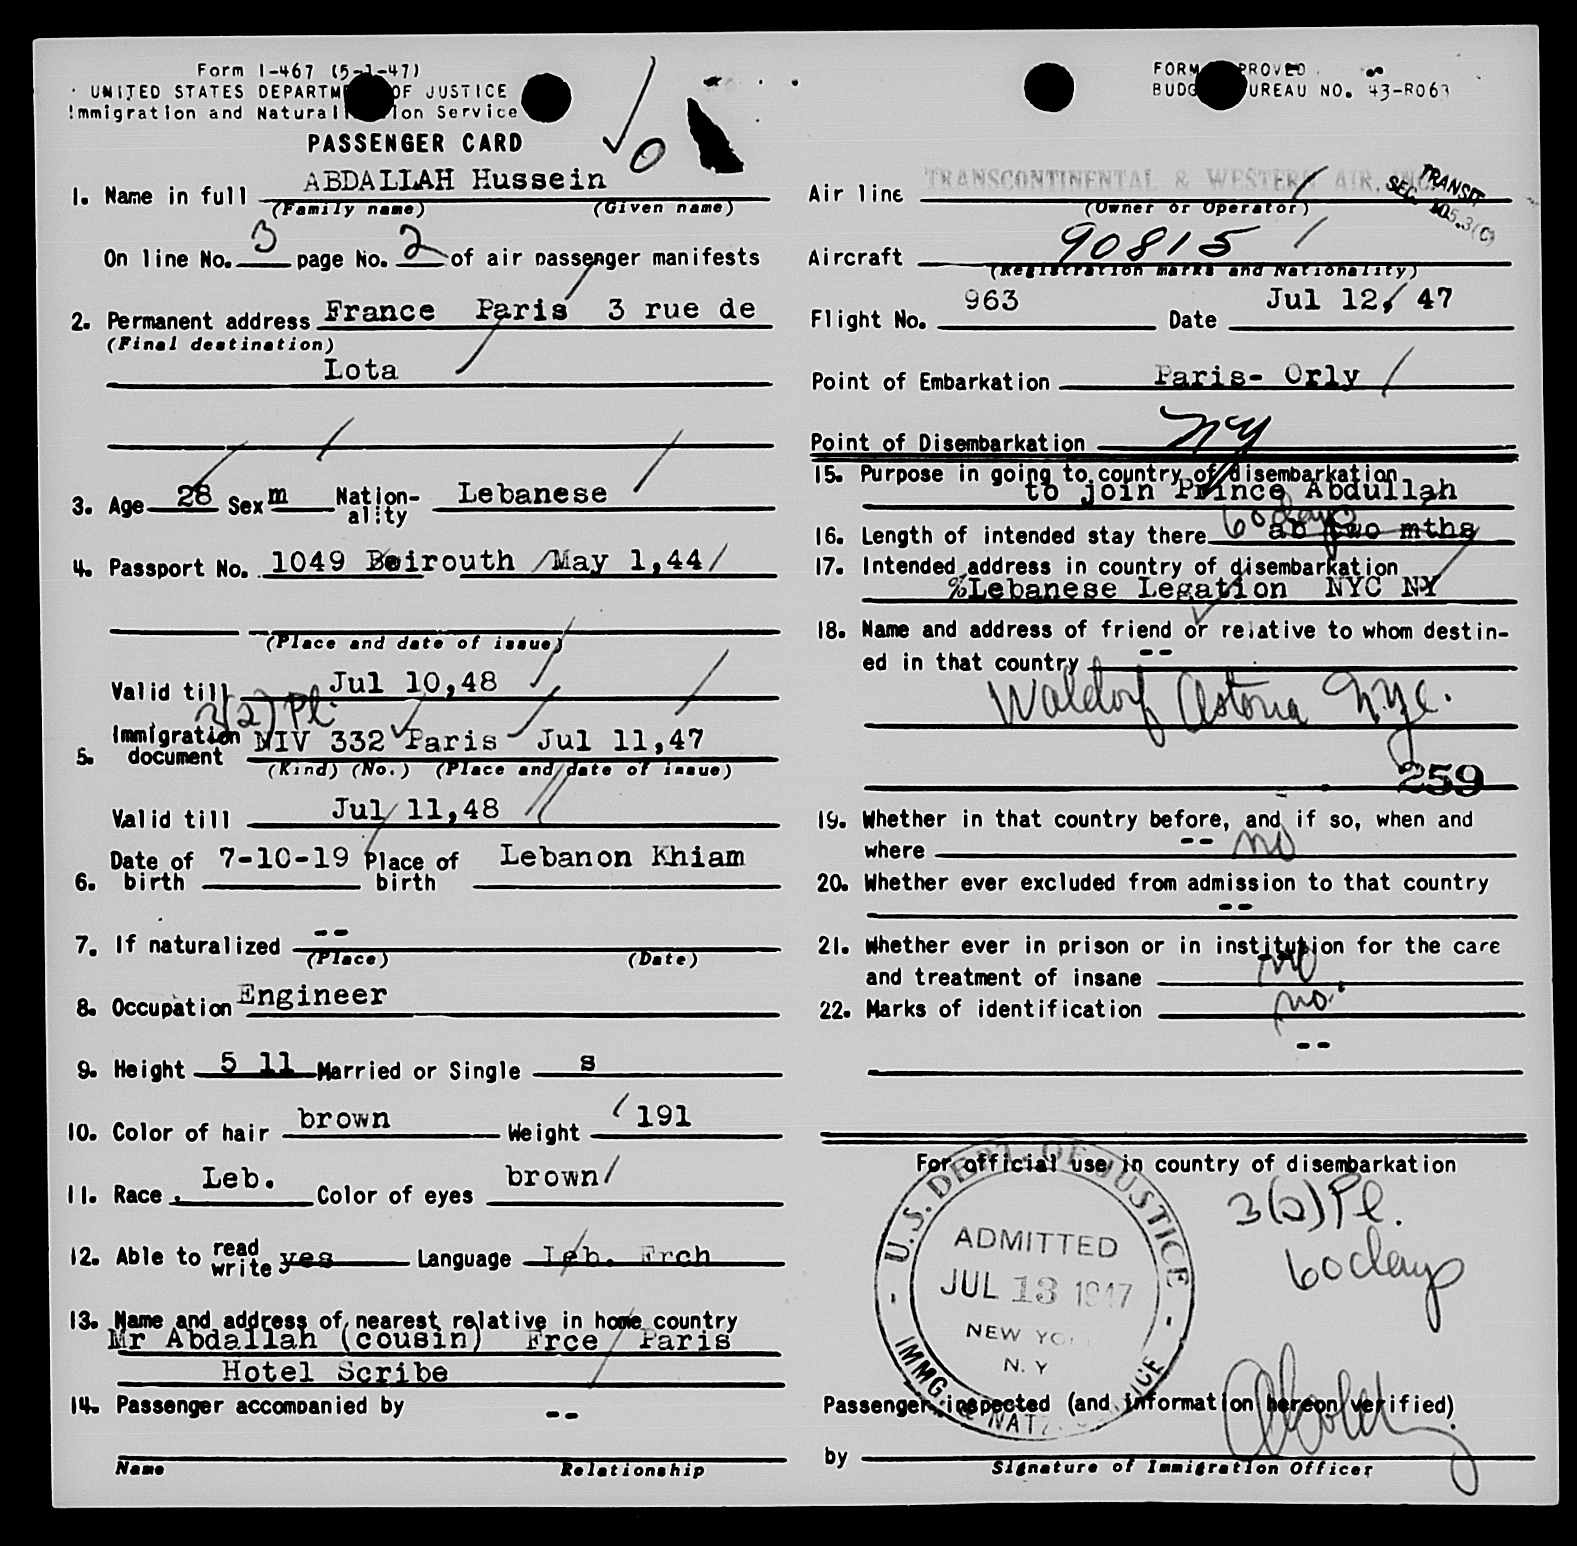 Form I-467 (5-1-47)
UNITED STATES DEPARTM OF JUSTICE
Immigration and Natural ion Service
PASSENGER CARD
1. Name in full ABDALLAH Hussein
(Family name) (Given name)
On line No. 3 page No. 2 of air passenger manifests
2. Permanent address France Paris 3 rue de
(Final destination)
Lota
3. Age 28 Sex m Nation-ality Lebanese
4. Passport No. 1049 Beirouth May 1,44
(Place and date of issue)
Valid till Jul 10,48
3(2) Pl.
5. Immigration document NIV 332 Paris Jul 11,47
(Kind) (No.) (Place and date of issue)
Valid till Jul 11,48
6. Date of birth 7-10-19 Place of birth Lebanon Khiam
7. If naturalized --
(Place) (Date)
8. Occupation Engineer
9. Height 5 11 Married or Single s
10. Color of hair brown Weight 191
11. Race Leb. Color of eyes brown
12. Able to read write yes Language Leb. Frch
13. Name and address of nearest relative in home country
Mr Abdallah (cousin) Frce Paris
Hotel Scribe
14. Passenger accompanied by --
Name Relationship
FORM PROVED
BUDG UREAU NO. 43-R063
Air line TRANSCONTINENTAL & WESTERN AIR, INC.
(Owner or Operator)
TRANSIT
SEC. 105.3(C)
Aircraft 90815
(Registration marks and Nationality)
Flight No. 963 Date Jul 12, 47
Point of Embarkation Paris- Orly
Point of Disembarkation NY
15. Purpose in going to country of disembarkation
to join Prince Abdullah
16. Length of intended stay there 60 days ab two mths
17. Intended address in country of disembarkation
%Lebanese Legation NYC NY
18. Name and address of friend or relative to whom destin-
ed in that country --
Waldorf Astoria Nyc.
259
19. Whether in that country before, and if so, when and
where -- no
20. Whether ever excluded from admission to that country
--
21. Whether ever in prison or in institution for the care
and treatment of insane no
22. Marks of identification no.
--
For official use in country of disembarkation
U.S. DEPT. OF JUSTICE
ADMITTED
JUL 13 1947
NEW YO
N. Y
IMMG. & NATZ. ICE
3(2) Pl.
60 days
Passenger inspected (and information hereon verified)
by
Signature of Immigration Officer